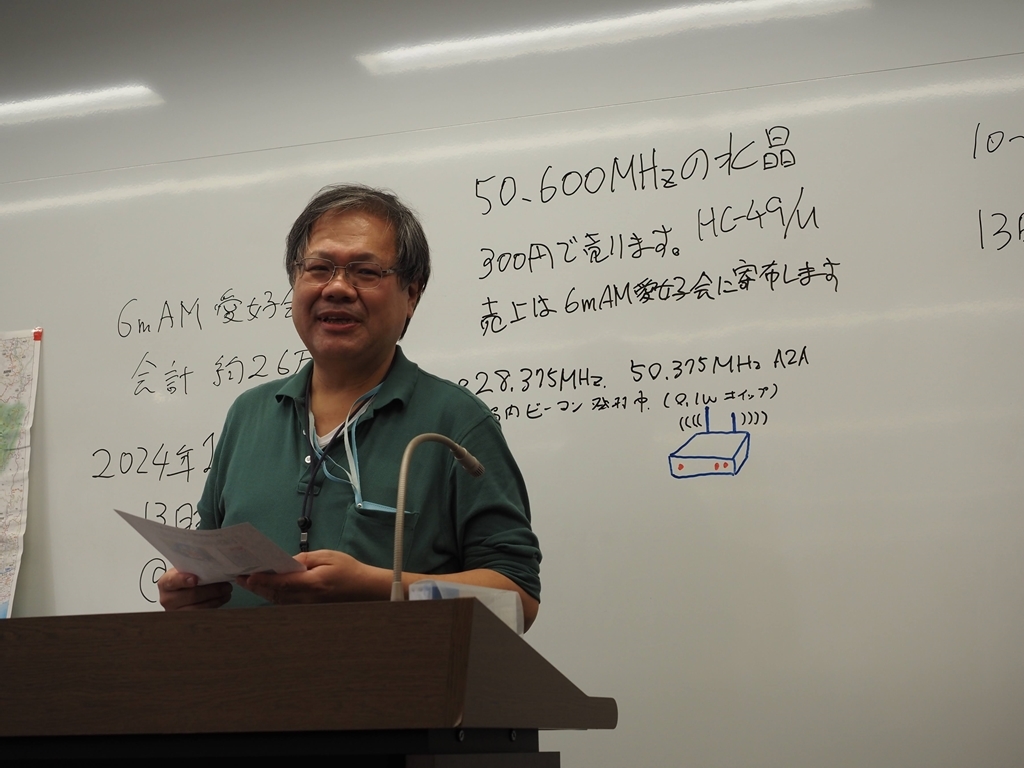 6mAM 愛好会
会計 約26万
2024年1
13日
@
50.600MHzの水晶
300円で売ります。HC-49/U
売上は6mAM愛好会に寄布します
28.375MHz. 50.375MHz A2A
内ビーコン 発射中. (0.1W ホイップ)
10~
13日